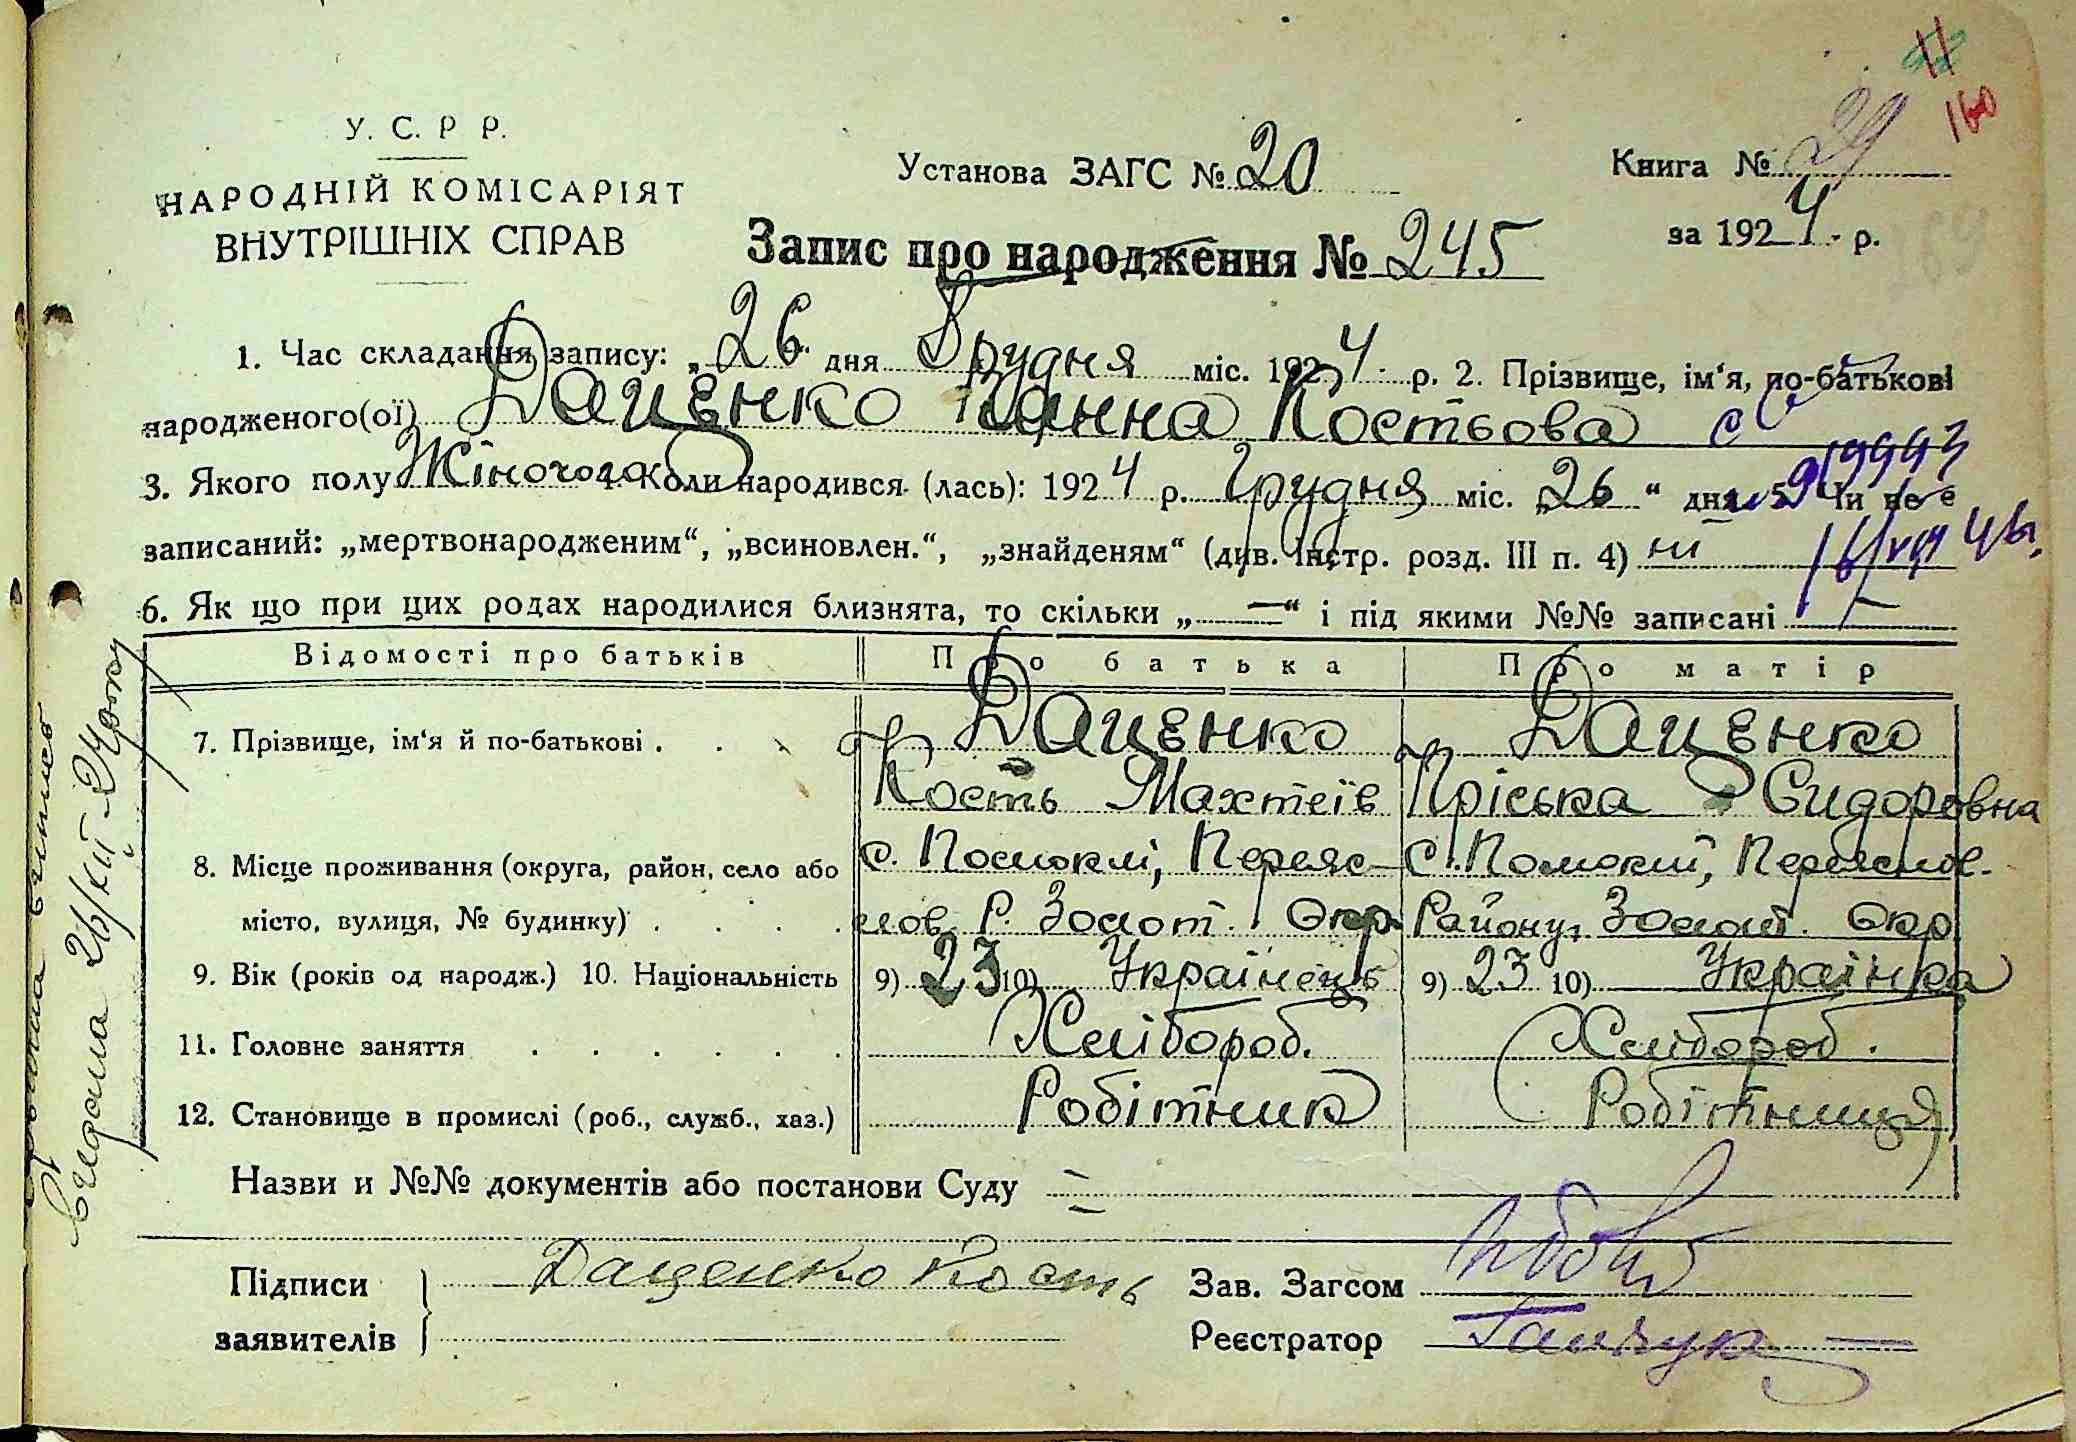 У. С. Р Р.
НАРОДНІЙ КОМІСАРІЯТ
ВНУТРІШНІХ СПРАВ
Установа ЗАГС № 20
Книга № 29
за 1924 р.
160
Запис про народження № 245
1. Час складання запису: „26“ дня Грудня міс. 1924 р. 2. Прізвище, ім‘я, по-батькові
народженого(ої) Даценко Ганна Костьова
3. Якого полу Жіночого 4. Коли народився (лась): 1924 р. Грудня міс. „26“ дня 5. Чи не є
записаний: „мертвонародженим“, „всиновлен.“, „знайденям“ (див. Інстр. розд. III п. 4) ні
6. Як що при цих родах народилися близнята, то скільки „—“ і під якими №№ записані —
Відомості про батьків Про батька Про матір
7. Прізвище, ім‘я й по-батькові . . . . Даценко Даценко
Кость Махтеїв Пріська Сидоровна
8. Місце проживання (округа, район, село або с. Помоклі, Переяс- с. Помоклі, Переяслов.
місто, вулиця, № будинку) . . . . лов. Р. Золот. Окр. Району, Золот. Окр.
9. Вік (років од народж.) 10. Національність 9) 23 10) Українець 9) 23 10) Українка
11. Головне заняття . . . . . . Хлібороб. Хлібороб.
12. Становище в промислі (роб., служб., хаз.) Робітник Робітниця
Назви и №№ документів або постанови Суду —
Підписи Даценко Кость Зав. Загсом
заявителів Реєстратор
видана 26/XII-24 року